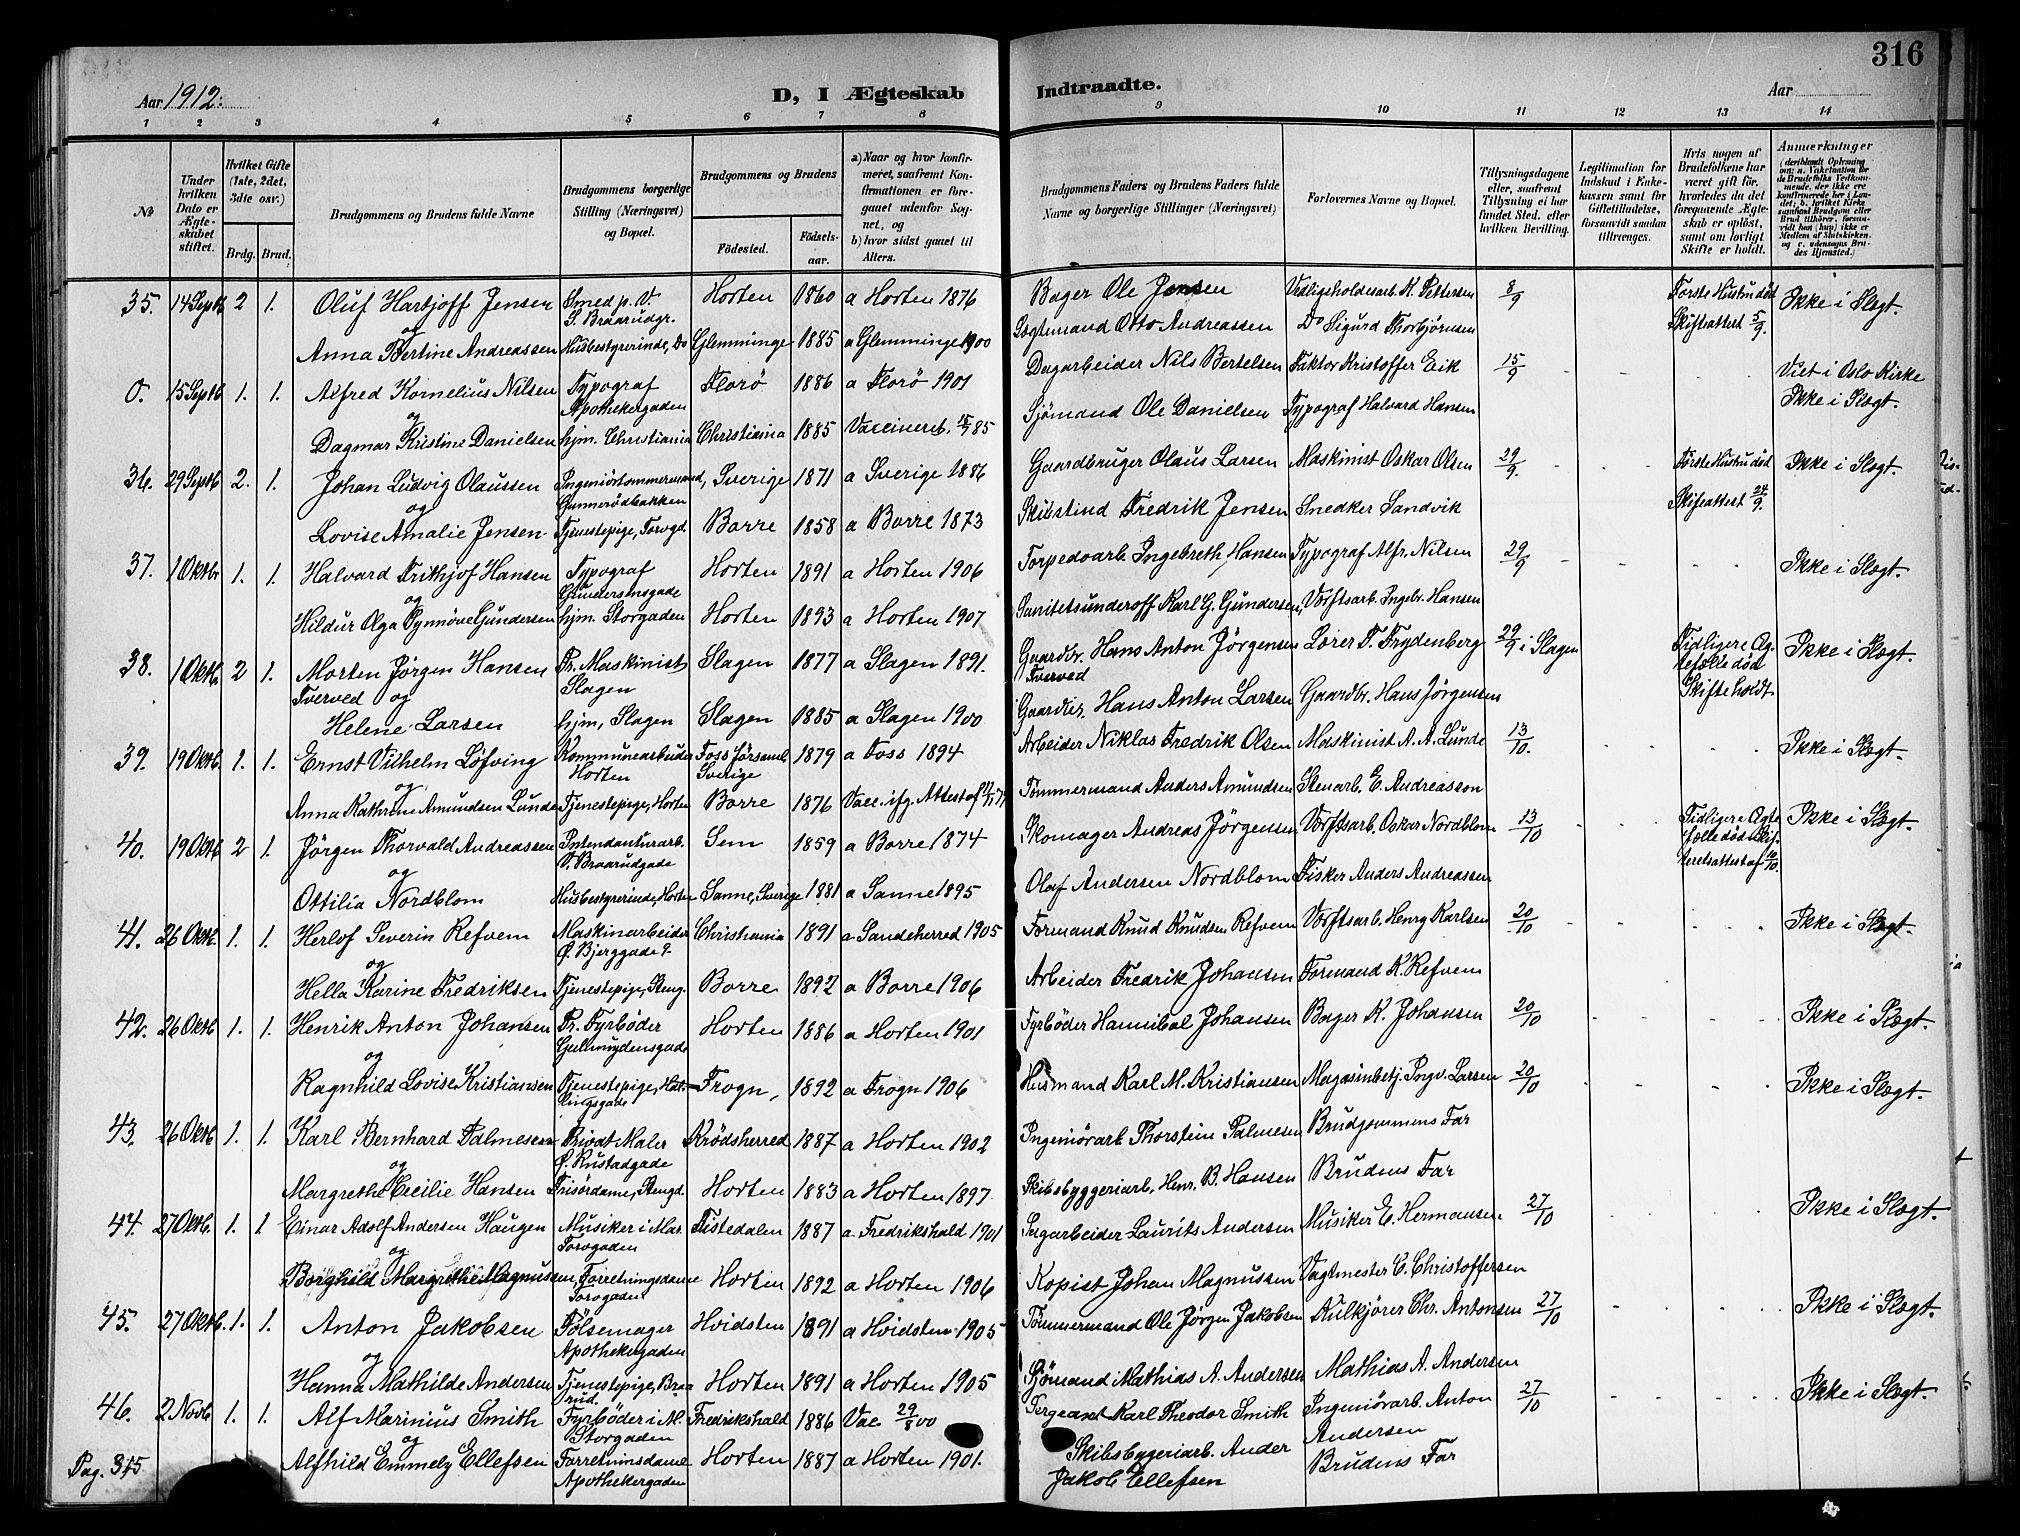 316
Aar 1912.
D, I Ægteskab
Indtraadte.
Aar
1 2 3 4 5 6 7 8 9 10 11 12 13 14
No
Under hvilken Dato er Ægteskabet stiftet.
Hvilket Gifte (1ste, 2det, 3die osv.)
Brdg. Brud.
Brudgommens og Brudens fulde Navne
Brudgommens borgerlige Stilling (Næringsvei) og Bopæl.
Brudgommens og Brudens
Fødested.
Fødselsaar.
a) Naar og hvor konfirmeret, saafremt Konfirmationen er foregaaet udenfor Sognet, og
b) hvor sidst gaaet til Alters.
Brudgommens Faders og Brudens Faders fulde Navne og borgerlige Stillinger (Næringsvei)
Forlovernes Navne og Bopæl.
Tillysningsdagene eller, saafremt Tillysning ei har fundet Sted, efter hvilken Bevilling.
Legitimation for Indskud i Enkekassen samt for Giftetilladelse, forsaavidt saadan tiltrænges.
Hvis nogen af Brudefolkene har været gift før, hvorledes da det foregaaende Ægteskab er opløst, samt om lovligt Skifte er holdt.
Anmærkninger
35. 14 Septb 2 1. Oluf Hartjoff Jensen Smed p. V. Horten 1860 a Horten 1876 Bager Ole Jensen Vedligeholdesarb. K. Pettersen 8/9 Første Hustru død Ikke i Slægt.
og S. Braarudgr. Skifteattest 5/9.
Anna Bertine Andreassen Husbestyrerinde, Do Glemminge 1885 a Glemminge 1900 Sægtemand Otto Andreassen Do Sigurd Thorbjørnsen
0. 15 Septb 1. 1. Alfred Kornelius Nilsen Typograf Florø 1886 a Florø 1901 Dagarbeider Nils Bertelsen Faktor Kristoffer Eik 15/9 Viet i Oslo Kirke
og Apothekergaden Ikke i Slægt.
Dagmar Kristine Danielsen hjm. Christiania Christiania 1885 Vaccineret 85 Sjømand Ole Danielsen Typograf Halvard Hansen
36. 29 Septb 2. 1. Johan Ludvig Olaussen Ingeniørtømmermand, Sverige 1871 a Sverige 1886 Gaardbruger Olaus Larsen Maskinist Oskar Olsen 29/9. Første Hustru død Ikke i Slægt.
og Gunnerødbakken Skifteattest 24/9.
Lovise Amalie Jensen Tjenestepige, Torvgd. Borre 1858 a Borre 1873 Skibstind Fredrik Jensen Snedker Sandvik
37. 1 Oktbr 1. 1. Halvard Frithjof Hansen Typograf Horten 1891 a Horten 1906 Torpedoarb Ingebreth Hansen Typograf Alfr. Nilsen 29/9 Ikke i Slægt.
og Gundersensgade
Hildur Olga Synnøve Gundersen hjm. Storgaden Horten 1893 a Horten 1907 Sanitetsunderoff Karl G. Gundersen, Værftsarb. Ingebr. Hansen
38. 1 Oktb. 2 1. Morten Jørgen Hansen Pr. Maskinist Slagen 1877 a Slagen 1891. Gaardbr. Hans Anton Jørgensen Lærer T. Frydenberg 29/9 i Slagen Tidligere Æg- Ikke i Slægt.
Tverved og Slagen Tverved tefælle død
Helene Larsen hjm, Slagen Slagen 1885 a Slagen 1900 Gaardeier, Hans Anton Larsen Gaardbr. Hans Jørgensen Skifte holdt
39. 19 Oktb. 1. 1. Ernst Vilhelm Løfving Kommunearbeider Foss Førsaml. 1879 a Foss 1894 Arbeider Niklas Fredrik Olsen Maskinist A. A. Lunde 13/10. Ikke i Slægt.
og Horten Sverige
Anna Kathrine Amundsen Lunde Tjenestepige, Horten Borre 1876 Vacc. ifg. Attest af Tømmermand Anders Amundsen Stenarb. E. Andreasson
40. 19 Oktb 2 1. Jørgen Thorvald Andreassen Intendanturarb. Sem 1859 a Borre 1874 Skomager Andreas Jørgensen Værftsarb. Oskar Nordblom 13/10 Tidligere Ægte- Ikke i Slægt.
og V. Braarudgade fælle død Skifteretsattest af 10/10.
Ottilia Nordblom Husbestyrerinde, Horten Sanne, Sverige 1881 a Sanne 1895 Olaf Andersen Nordblom Fisker Anders Andreassen
41. 26 Oktb. 1. 1. Herlof Severin Refvem Maskinarbeider Christiania 1891 a Sandeherred 1905 Formand Knud Knudsen Refvem Værftsarb. Henry Karlsen 20/10 Ikke i Slægt.
og Ø. Bjerggade 7.
Hella Karine Fredriksen Tjenestepige, Steng. Borre 1892 a Borre 1906 Arbeider Fredrik Johansen Formand K. Refvem
42. 26 Oktb. 1. 1. Henrik Anton Johansen Pr. Fyrbøder Horten 1886 a Horten 1901 Fyrbøder Hannibal Johansen Bager K. Johansen 20/10 Ikke i Slægt.
og Gjelmuydensgade
Ragnhild Lovise Kristiansen Tjenestepige, Hal- Frogn, 1892 a Frogn 1906 Husmand Karl M. Kristiansen Magasinbetj. Ingv. Larsen 20/10 Ikke i Slægt.
lingsgade
43. 26 Oktb 1. 1. Karl Bernhard Palmesen Privat Maler Krødsherred 1887 a Horten 1902 Ingeniørarb Thorstein Palmesen Brudgommens Far
og Ø. Rustadgade
Margrethe Cecilie Hansen Frisørdame, Stengd. Horten 1883 a Horten 1897 Skibsbyggeriarb, Henr. B. Hansen Brudens Far
44. 27 Oktb. 1. 1. Einar Adolf Andersen Haugen Musiker i Mar. Tistedalen 1887 a. Fredrikshald 1901 Sagarbeider Laurits Andersen Musiker E. Hermansen 27/10 Ikke i Slægt.
og Torvgaden
Borghild Margrethe Magnussen, Forretningsdame Horten 1892 a Horten 1906 Kopist Johan Magnussen Vagtmester C. Christoffersen
Torvgaden
45. 27 Oktb. 1. 1. Anton Jakobsen Pølsemager Hvidsten 1891 a Hvidsten 1905 Tømmermand Ole Jørgen Jakobsen Kulkjører Chr. Antonsen 27/10 Ikke i Slægt.
og Apothekergaden
Hanna Mathilde Andersen Tjenestepige, Braa- Horten 1891 a Horten 1905 Sjømand Mathias A. Andersen Mathias A. Andersen
rud.
46. 2 Novb 1. 1. Alf Marinius Smith Fyrbøder i M. Fredrikshald 1886 Vac 29/8 00 Sergeant Karl Theodor Smith Ingeniørarb. Anton 27/10 Ikke i Slægt.
og Storgaden Andersen
Alfhild Emmely Ellefsen Forretninsdame Horten 1887 a Horten 1901. Skibsbygeriarb. Ander Brudens Far
Apothekergaden Jakob Ellefsen
Pag. 315